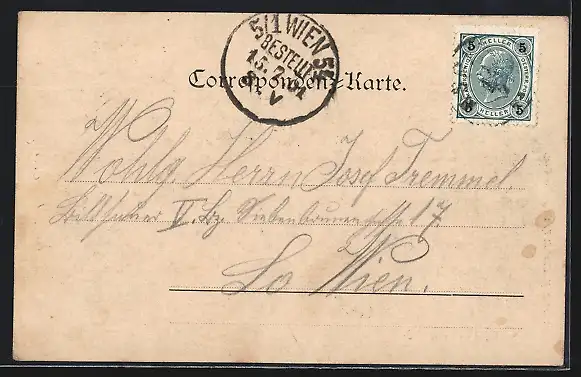 5/1 WIEN 55
BESTELLT
15. 2. 01
V
5
5
HELLER
5
5
HELLER
Correspondenz-Karte.
Wohlg. Herrn Josef Tremmel.
V. Bz. Siebenbrunnengasse 17.
In Wien.